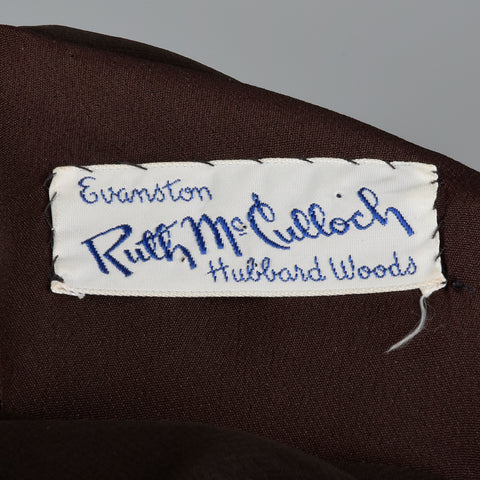 Evanston
Ruth McCulloch
Hubbard Woods